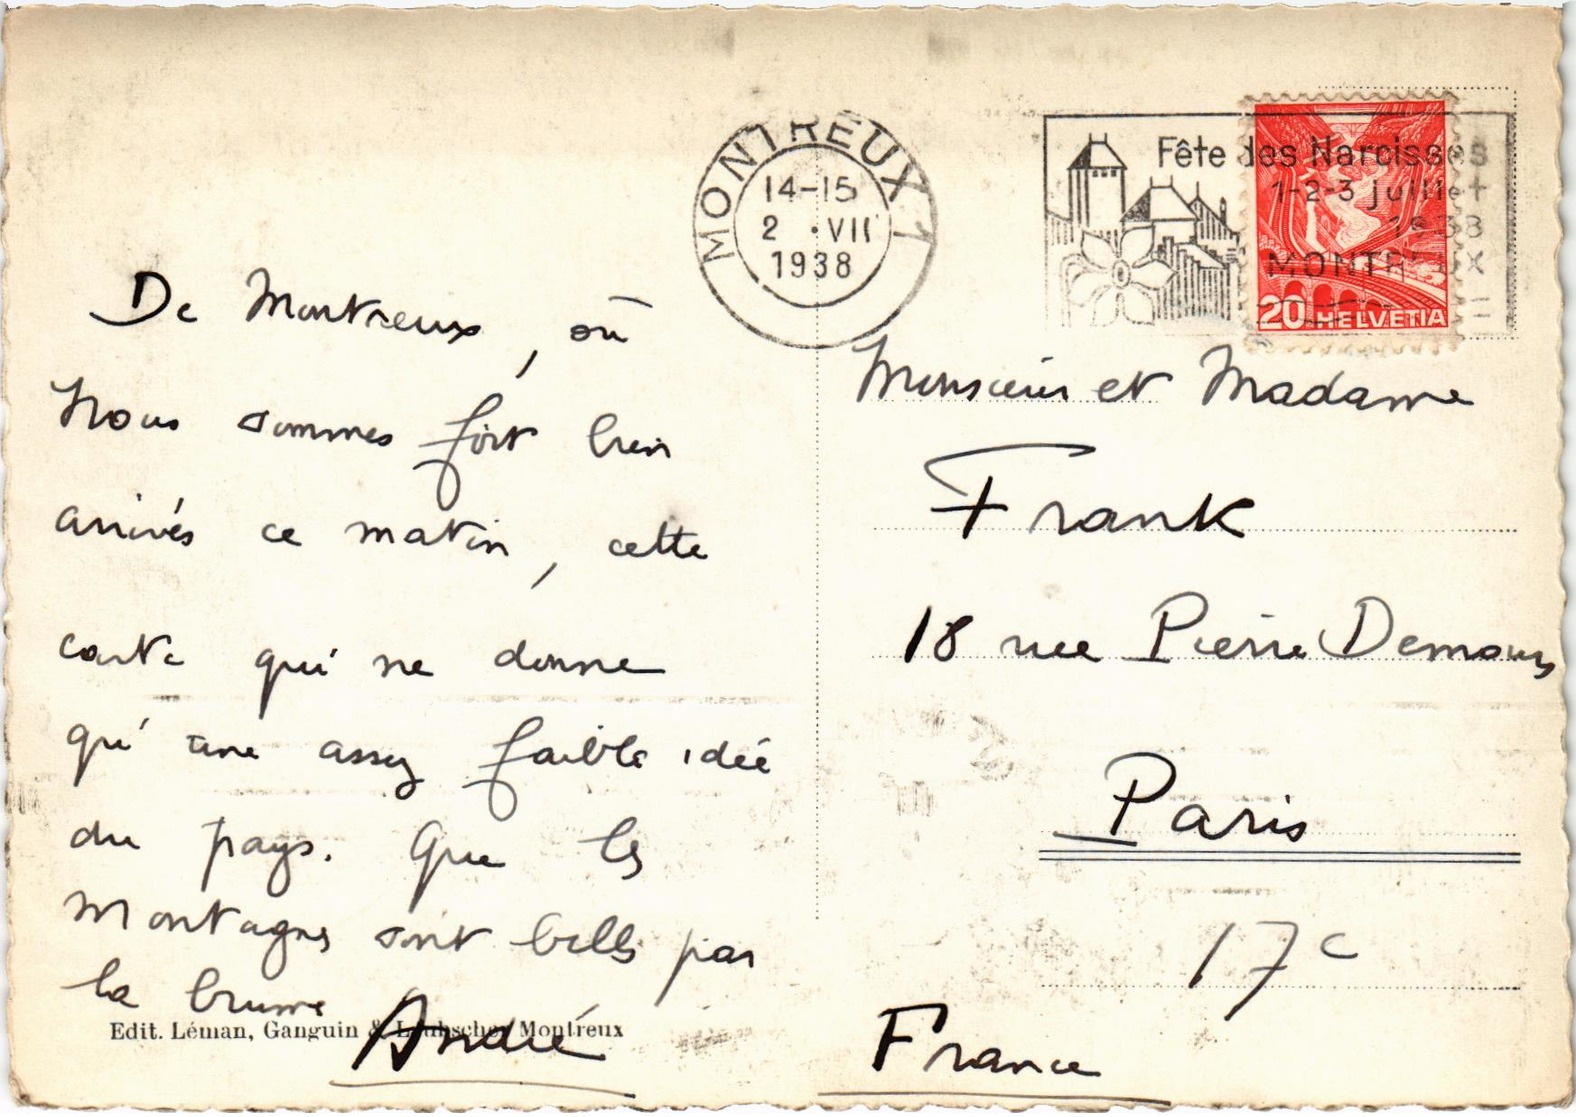 MONTREUX 1
14-15
2 · VII
1938
Fête des Narcisses
1-2-3 juillet
1938
MONTREUX
20 HELVETIA
De Montreux, où
nous sommes fort bien
arrivés ce matin, cette
carte qui ne donne
qu'une assez faible idée
du pays. Que les
montagnes sont belles par
la brume
André
Edit. Léman, Ganguin & Laubscher Montreux
Monsieur et Madame
Frank
18 rue Pierre Demours
Paris
17e
France